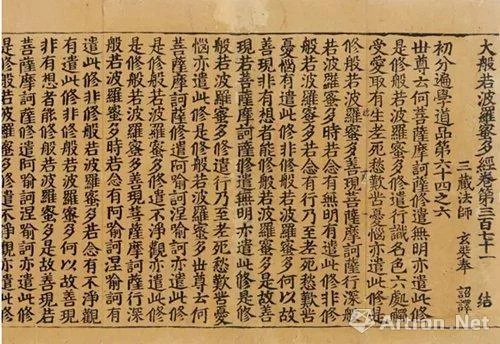 大般若波羅蜜多經卷第三百七十一 結
三藏法師 玄奘奉 詔譯
初分遍學道品第六十四之六
世尊云何菩薩摩訶薩修遣無明亦遣此修
是修般若波羅蜜多修遣行識名色六處觸
受愛取有生老死愁歎苦憂惱亦遣此修是
修般若波羅蜜多善現菩薩摩訶薩行深般
若波羅蜜多時若念有無明有遣此修非修
般若波羅蜜多若念有行乃至老死愁歎苦
憂惱有遣此修非修般若波羅蜜多何以故
善現非有想者能修般若波羅蜜多是故善
現若菩薩摩訶薩修遣無明亦遣此修是修
般若波羅蜜多修遣行乃至老死愁歎苦憂
惱亦遣此修是修般若波羅蜜多世尊云何
菩薩摩訶薩修遣阿喻訶涅喻訶亦遣此修
是修般若波羅蜜多修遣不淨觀亦遣此修
是修般若波羅蜜多善現菩薩摩訶薩行深
般若波羅蜜多時若念有阿喻訶涅喻訶有
遣此修非修般若波羅蜜多若念有不淨觀
有遣此修非修般若波羅蜜多何以故善現
非有想者能修般若波羅蜜多是故善現若
菩薩摩訶薩修遣阿喻訶涅喻訶亦遣此修
是修般若波羅蜜多修遣不淨觀亦遣此修
Artron.Net